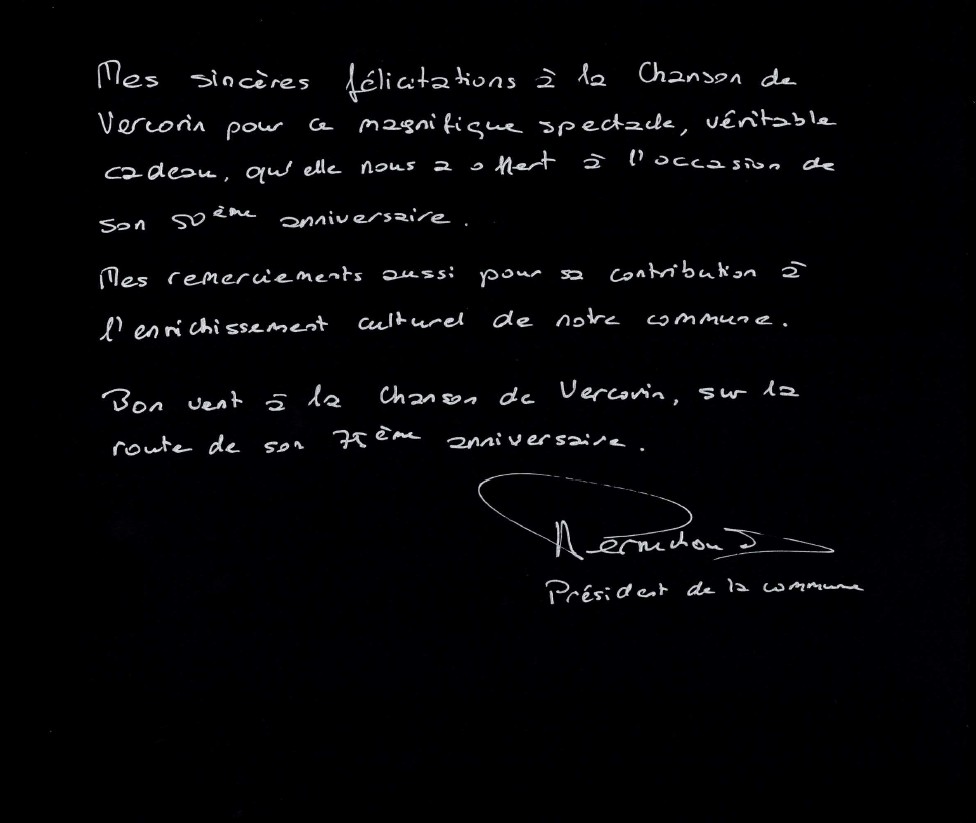 Mes sincères félicitations à la Chanson de
Vercorin pour ce magnifique spectacle, véritable
cadeau, qu'elle nous a offert à l'occasion de
son 50ème anniversaire.
Mes remerciements aussi pour sa contribution à
l'enrichissement culturel de notre commune.
Bon vent à la Chanson de Vercorin, sur la
route de son 75ème anniversaire.
Président de la commune